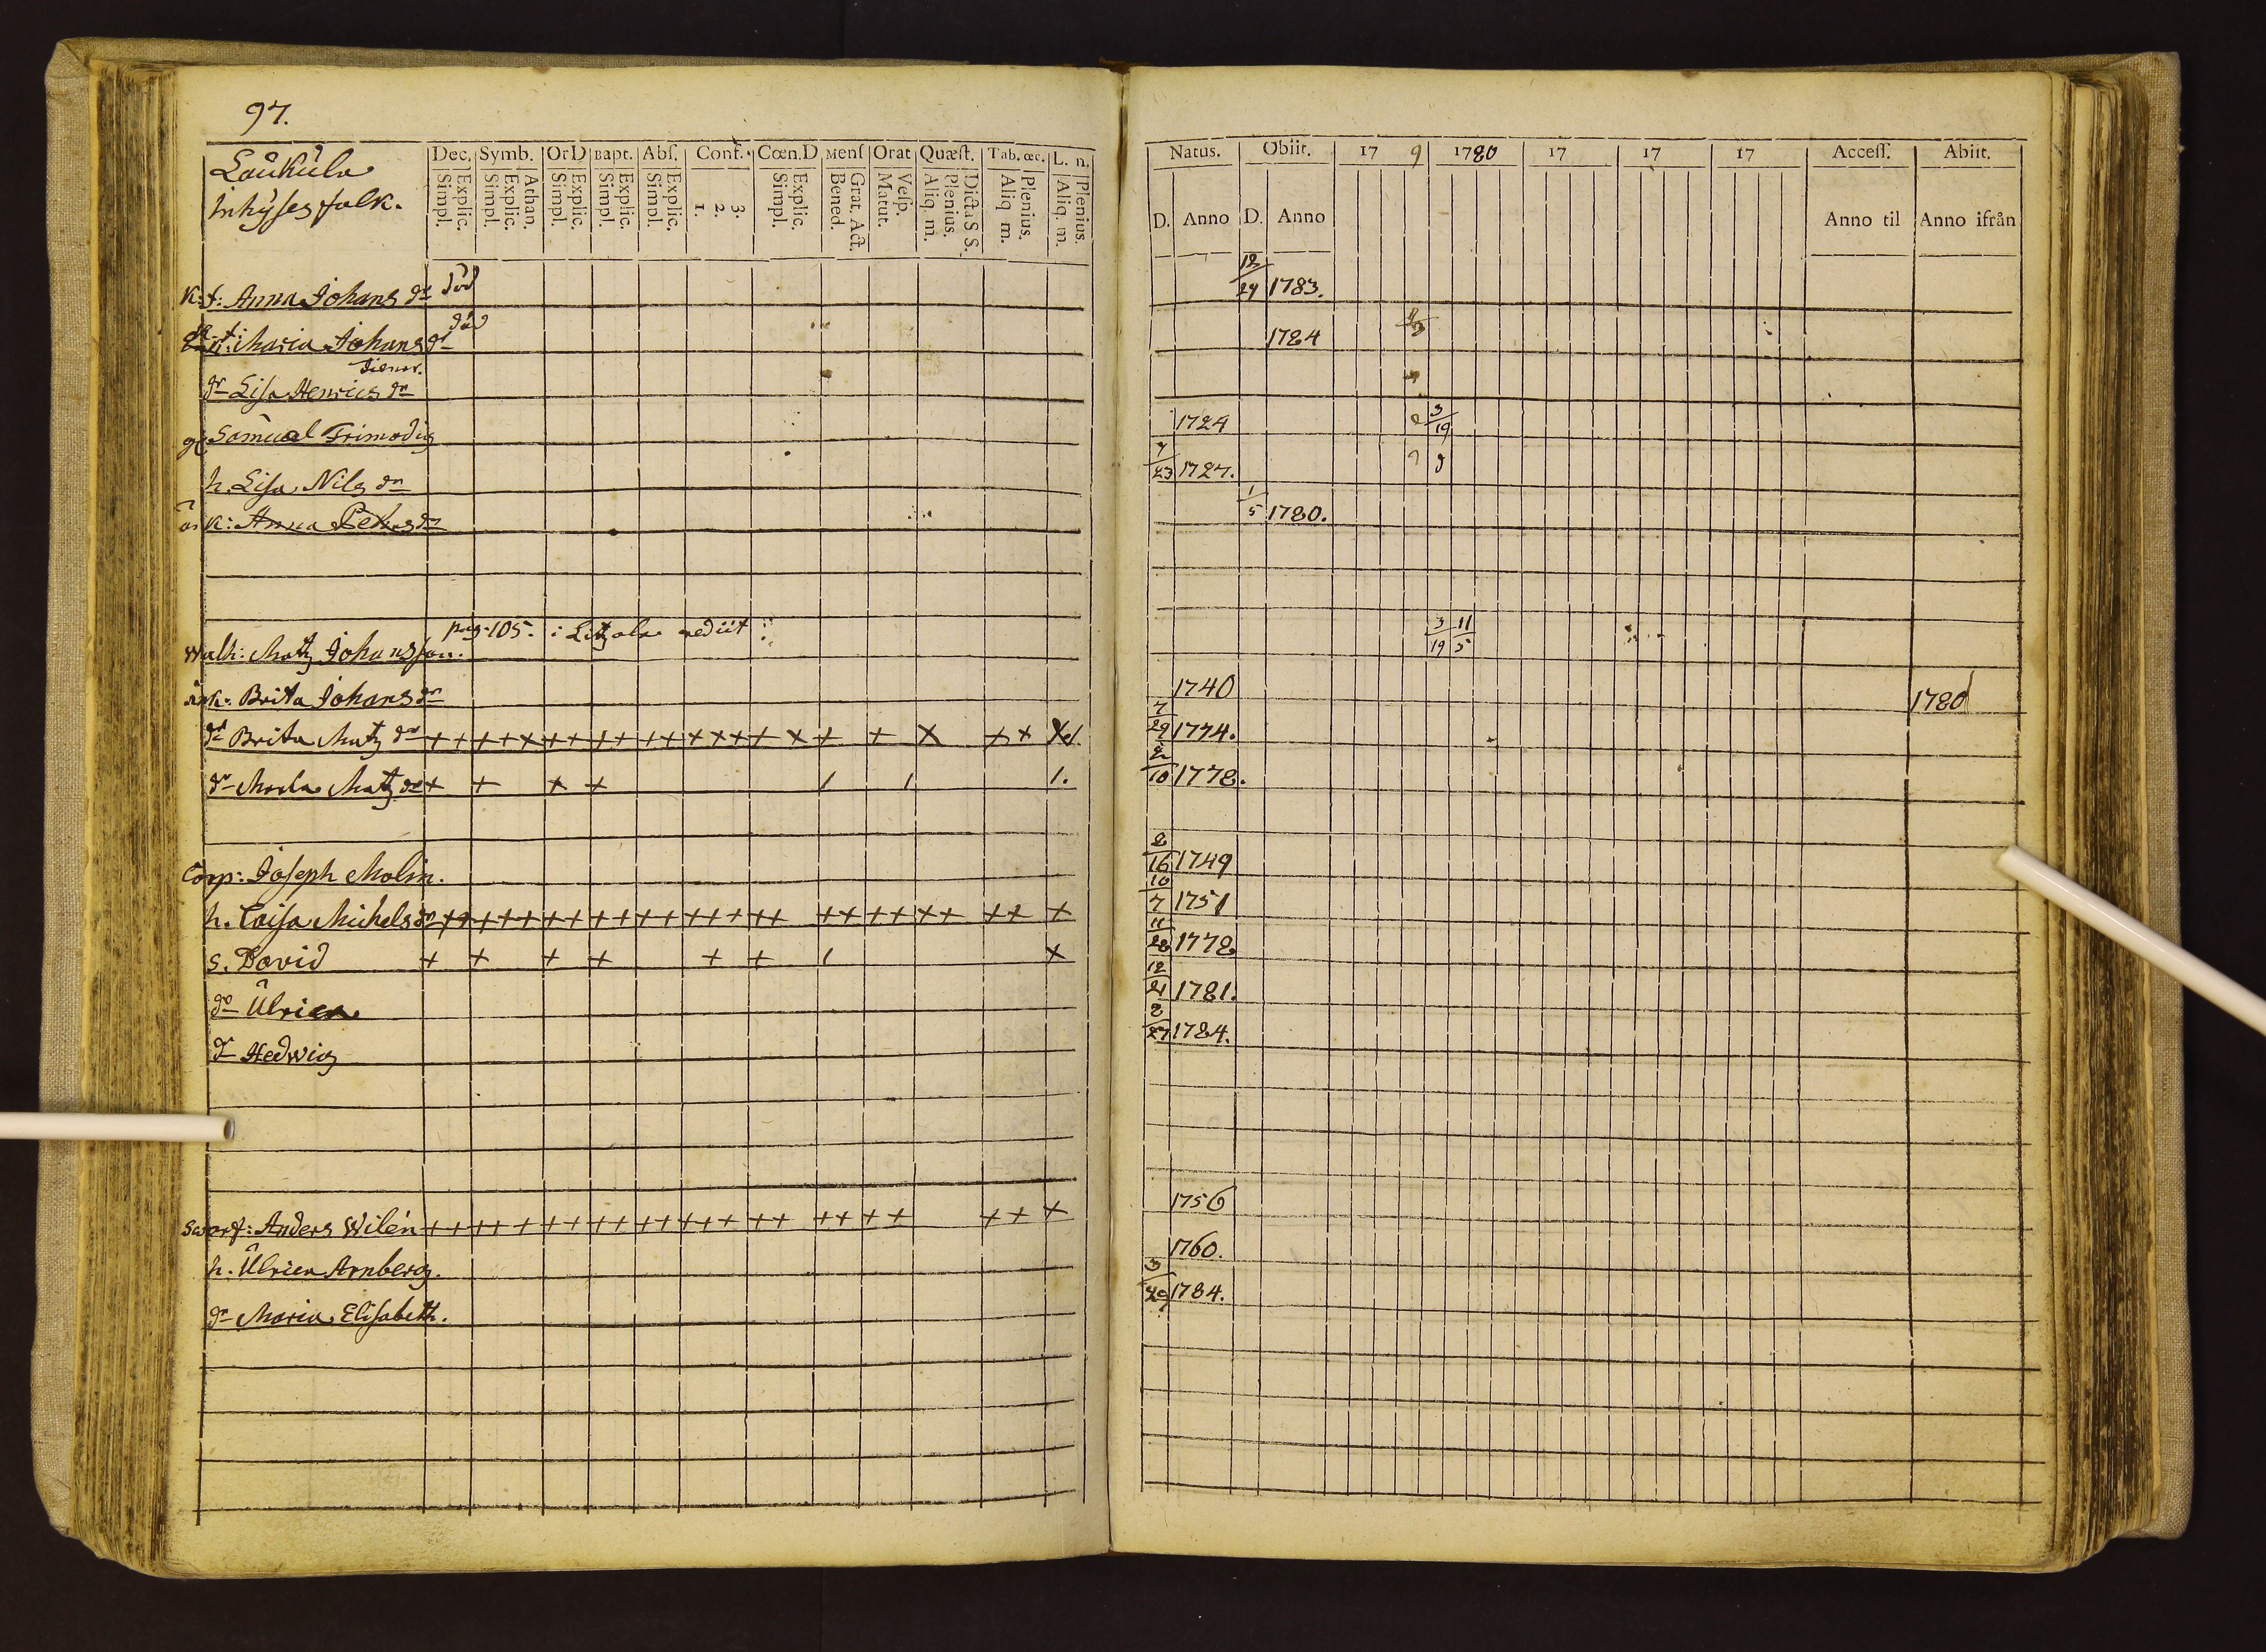 97.
Laukula
Inhyses folk.
Dec. Symb. Or D Bapt. Abſ. Conf. Cœn.D Menſ Orat Quæſt. Tab. œc. L. n.
Simpl. Explic. Simpl. Explic. Athan. Simpl. Explic. Simpl. Explic. Simpl. Explic. 1. 2. 3. Simpl. Explic. Bened. Grat. Act. Matut. Veſp. Aliq. m. Plenius. Dicta S S. Aliq m. Plenius. Aliq. m. Plenius.
Natus. Obiit. 17 9 1780 17 17 17 Acceſſ. Abiit.
D. Anno D. Anno Anno til Anno ifrån
Anna Johans dr död 12/29 1783.
Maria Johans dr död 1784
dr Lisa Henrics dr
Samuel Frimodig 1724 3/19
h. Lisa Nils dr 7/23 1727.
k: Anna Pehrs dr 1/5 1780.
pag. 105. i rediit
Matz Johansson. 3/19 11/5
Brita Johans dr 1740 1780
dr Brita Matz dr + + + + x + + + + + + x x + + x + + x + + 7/29 1774.
dr Matz dr + + + + / / 1. 2/10 1778.
Corp: Joseph Molin. 2/16 1749
h. Caisa Michels dr + + + + + + + + + + + + + + + + + + + + + + + + 10/7 1751
s. David + + + + + + / x 11/28 1778
dr Ulrica 12/21 1781.
dr Hedwig 2/27 1784.
Swarf: Anders Wilén + + + + + + + + + + + + + + + + + + + + + x 1756
h. Ulrica Arnberg. 1760.
dr Maria Elisabeth. 3/29 1784.